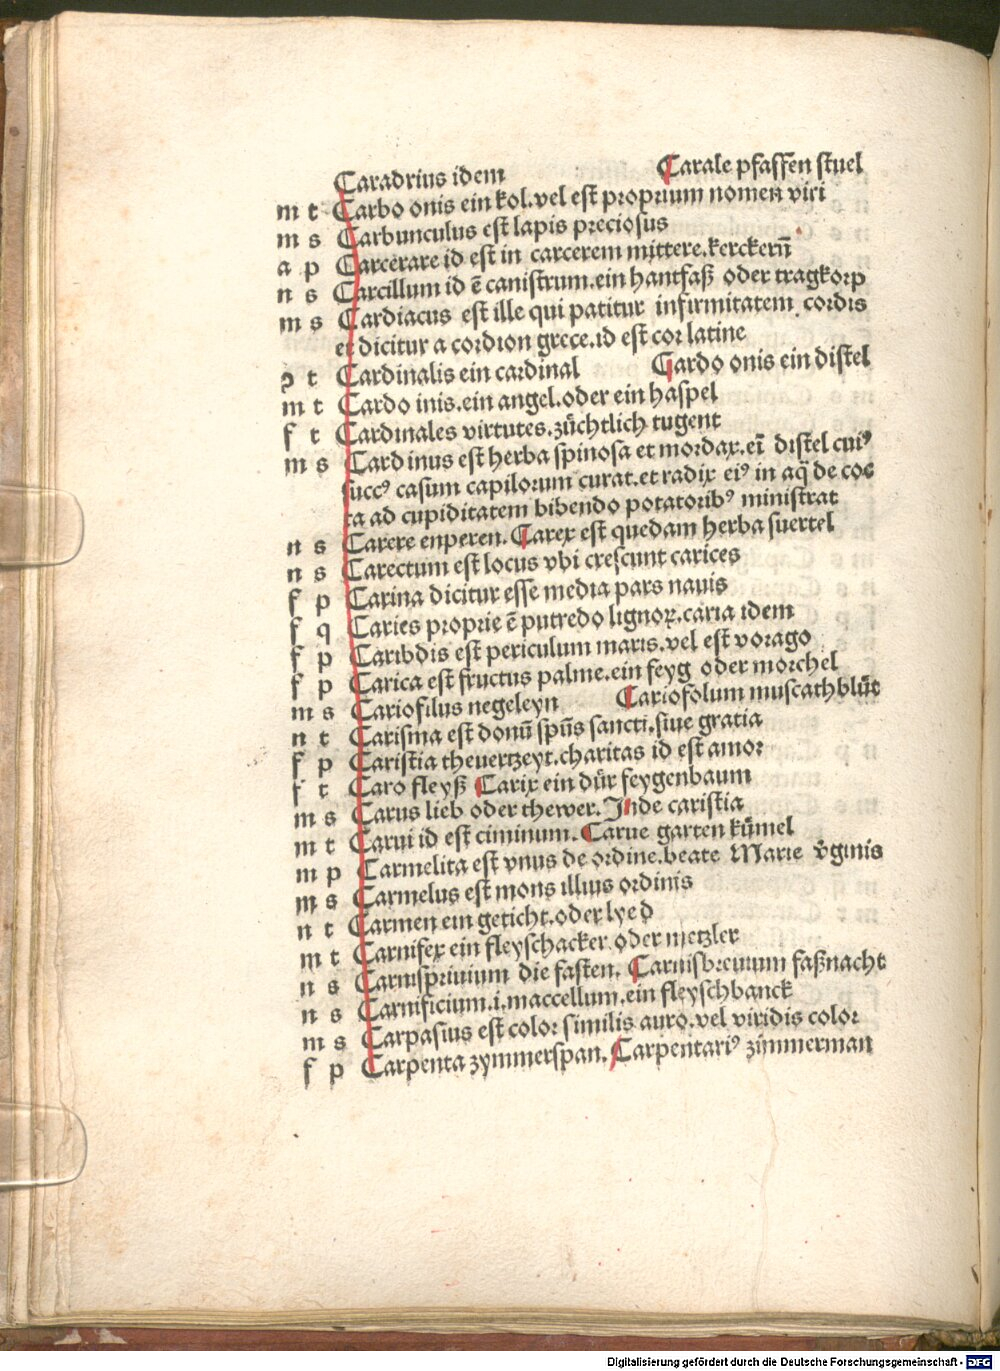 Caradrius idem Carale pfaffen stuel
m t Carbo onis ein kol.vel est proprium nomen viri
m s Carbunculus est lapis preciosus
a p Carcerare id est in carcerem mittere.kerckern̄
n s Carcillum id ē canistrum.ein hantfaß oder tragkorp
m s Cardiacus est ille qui patitur infirmitatem cordis
et dicitur a cordion grece.id est cor latine
ꝯ t Cardinalis ein cardinal Cardo onis ein distel
m t Cardo inis.ein angel.oder ein haspel
f t Cardinales virtutes.zůchtlich tugent
m s Cardinus est herba spinosa et mordax.eī distel cuiꝰ
succꝰ casum capilorum curat.et radix eiꝰ in aq̄ de coc
ta ad cupiditatem bibendo potatoribꝰ ministrat
n s Carere enperen. Carex est quedam herba suertel
n s Carectum est locus vbi crescunt carices
f p Carina dicitur esse media pars nauis
f q Caries proprie ē putredo lignoꝝ.caria idem
f p Caribdis est periculum maris.vel est vorago
f p Carica est fructus palme.ein feyg oder morchel
m s Cariofilus negeleyn Cariofolum muscathblůt
n t Carisma est donū spūs sancti.siue gratia
f p Caristia theuertzeyt.charitas id est amor
f t Caro fleyß Carix ein důr feygenbaum
m s Carus lieb oder thewer. Inde caristia
m t Carui id est ciminum. Carue garten kůmel
m p Carmelita est vnus de ordine.beate Marie v̄ginis
m s Carmelus est mons illius ordinis
n t Carmen ein geticht.oder lyed
m t Carnifex ein fleyschacker oder metzler
n s Carnispriuium die fasten. Carnisbreuium faßnacht
n s Carnificium.i.maccellum.ein fleyschbanck
m s Carpasius est color similis auro.vel viridis color
f p Carpenta zymmerspan. Carpentariꝰ zůmmerman
Digitalisierung gefördert durch die Deutsche Forschungsgemeinschaft - DFG